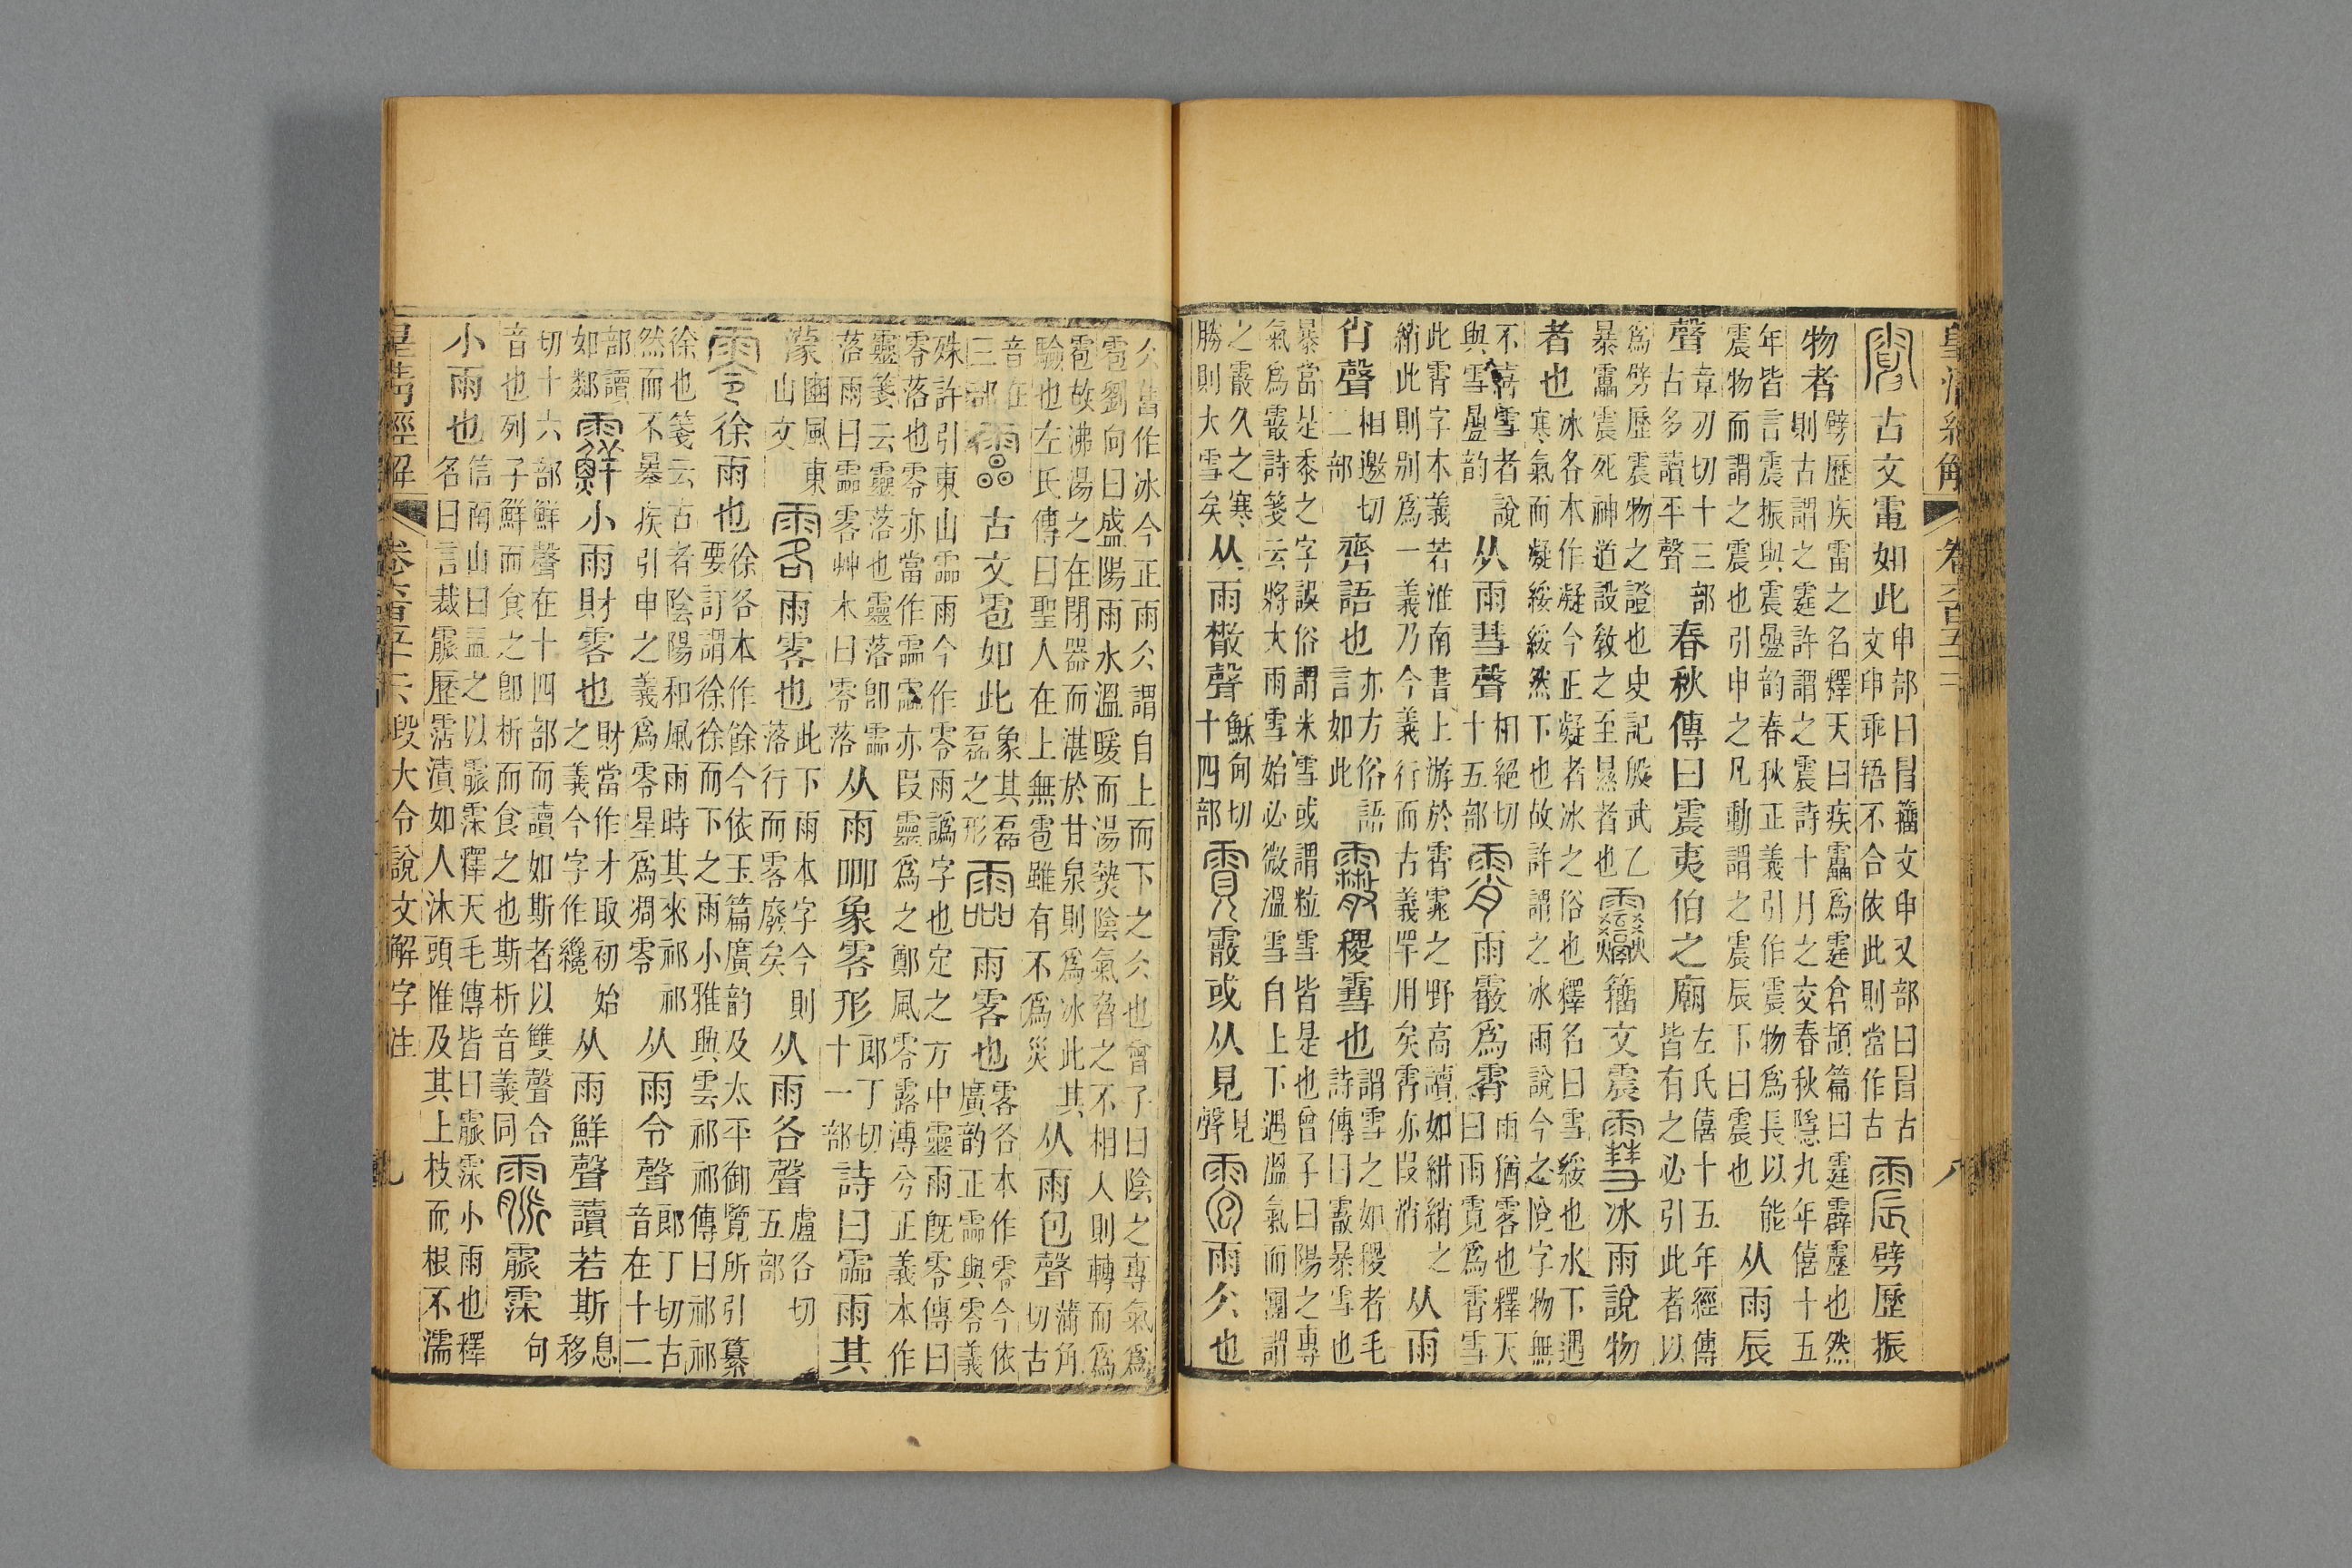 皇清經解 卷六百五十一 八
古文電如此
申部曰𦥔籒文申又部曰𦥔古
文申乖牾不合依此則當作古
震劈歷振
物者
劈歷疾雷之名釋天曰疾靁爲霆倉頡篇曰霆霹靂也然
則古謂之霆許謂之震詩十月之交春秋隱九年僖十五
年皆言震振與震疊韵春秋正義引作震物爲長以能
震物而謂之震也引申之凡動謂之震辰下曰震也
从雨辰
聲
章刃切十三部
古多讀平聲
春秋傳曰震夷伯之廟
左氏僖十五年經傳
皆有之必引此者以
爲劈歷震物之證也史記殷武乙
暴靁震死神道設敎之至㬥者也
籒文震
冰雨說物
者也
冰各本作凝今正凝者冰之俗也釋名曰雪綏也水下遇
寒氣而凝綏綏然下也故許謂之冰雨說今之悅字物無
不喜雪者說
與雪疊韵
从雨彗聲
相絕切
十五部
霄雨霰爲霄
雨猶零也釋天
曰雨霓爲霄雪
此霄字本義若淮南書上游於霄雿之野高讀如紺綃之
綃此則別爲一義乃今義行而古義罕用矣霄亦叚消
从雨
肖聲
相邀切
二部
齊語也
亦方俗語
言如此
霰稷雪也
謂雪之如稷者毛
詩傳曰霰暴雪也
暴當是黍之字誤俗謂米雪或謂粒雪皆是也曾子曰陽之專
氣爲霰詩箋云將大雨雪始必微溫雪自上下遇溫氣而團謂
之霰久之寒
勝則大雪矣
从雨散聲
穌甸切
十四部
霰或从見
見
聲
雹雨仌也
仌舊作冰今正雨仌謂自上而下之仌也曾子曰陰之專氣爲
雹劉向曰盛陽雨水溫暖而湯熱陰氣脅之不相入則轉而爲
雹故沸湯之在閉器而湛於甘泉則爲冰此其
驗也左氏傳曰聖人在上無雹雖有不爲災
从雨包聲
蒲角
切古
音在
三部
古文雹如此
象其磊
磊之形
霝雨零也
零各本作零今依
廣韵正霝與零義
殊許引東山霝雨今作零雨譌字也定之方中靈雨旣零傳曰
零落也零亦當作霝霝亦叚靈爲之鄭風零露漙兮正義本作
靈箋云靈落也靈落卽霝
落雨曰霝零艸木曰零落
从雨𠱠象零形
郎丁切
十一部
詩曰霝雨其
濛
豳風東
山文
雨零也
此下雨本字今則
落行而零廢矣
从雨各聲
盧各切
五部
零徐雨也
徐各本作餘今依玉篇廣韵及太平御覽所引纂
要訂謂徐徐而下之雨小雅興雲祁祁傳曰祁祁
徐也箋云古者陰陽和風雨時其來祁祁
然而不暴疾引申之義爲零星爲凋零
从雨令聲
郎丁切古
音在十二
部讀
如鄰
小雨財零也
財當作才取初始
之義今字作纔
从雨鮮聲讀若斯
息
移
切十六部鮮聲在十四部而讀如斯者以雙聲合
音也列子鮮而食之卽析而食之也斯析音義同
霢霢霂
句
小雨也
信南山曰益之以霢霂釋天毛傳皆曰霢霂小雨也釋
名曰言裁霢歷霑漬如人沐頭惟及其上枝而根不濡
皇清經解 卷六百五十一 段大令說文解字注 九